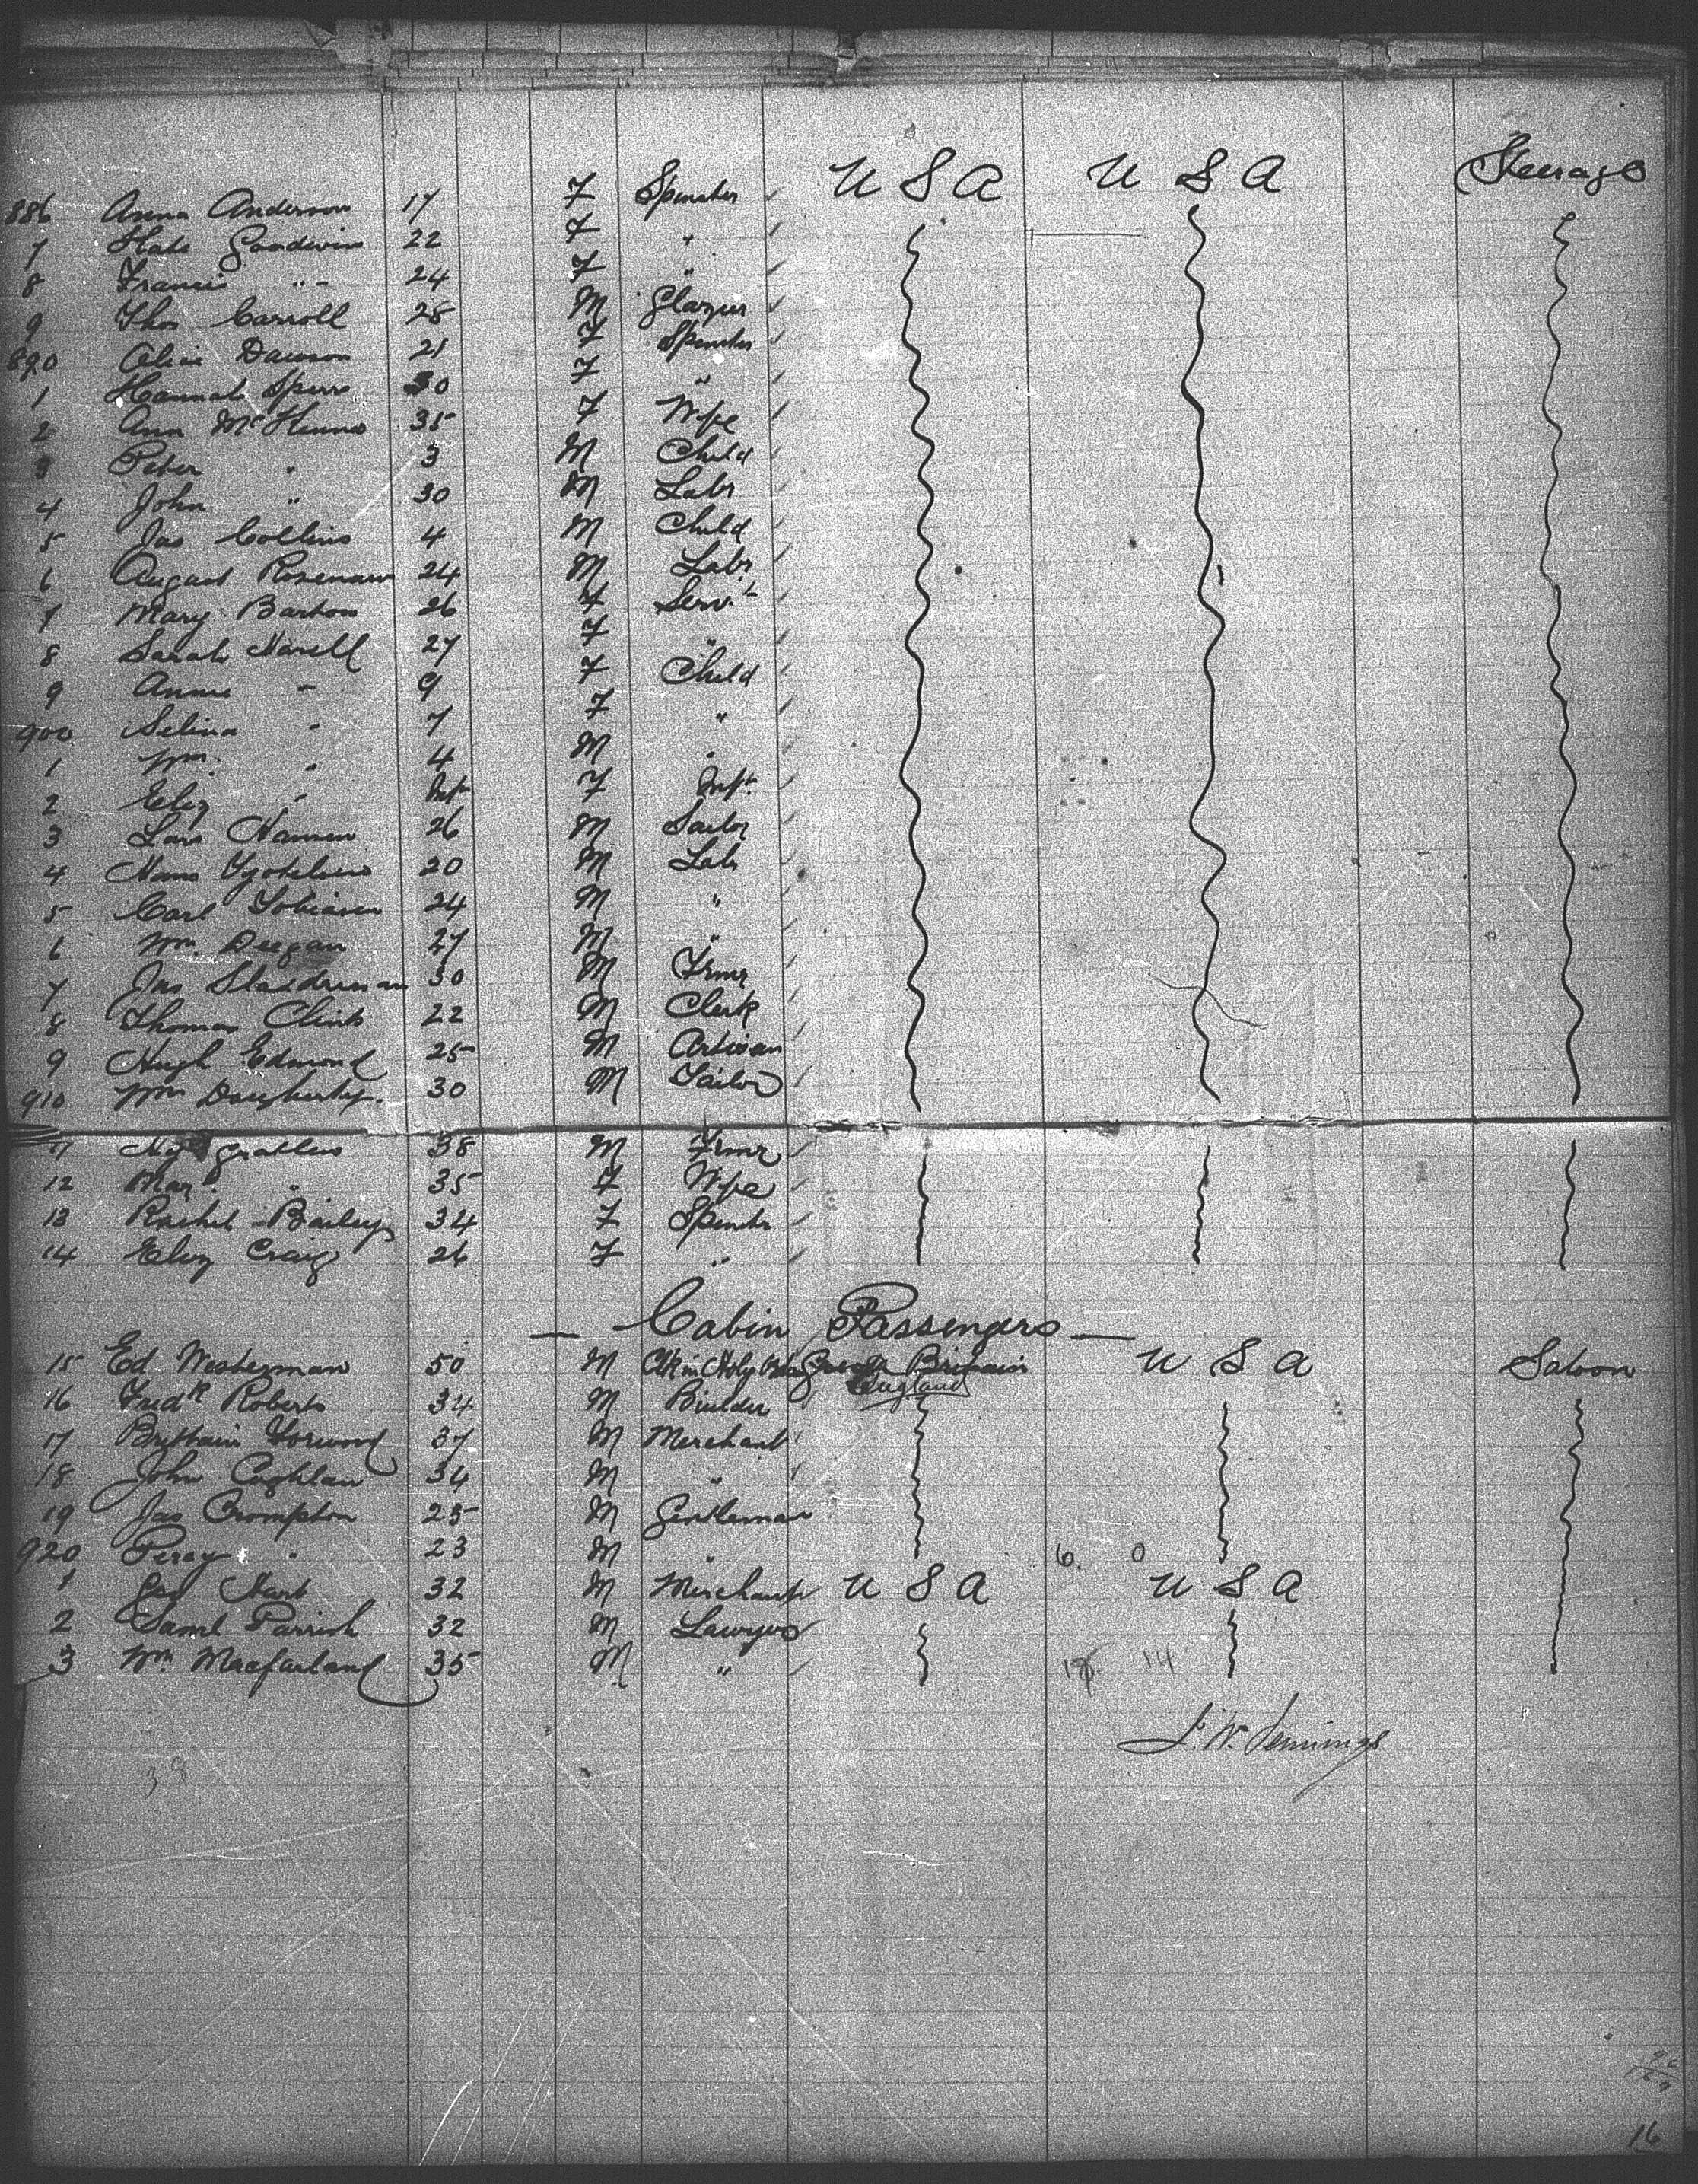 886 Anna Anderson 17 F Spinster U S A U S A Steerage
7 Kate Goodwin 22 F "
8 Francis " 24 F "
9 Thos Carroll 28 M Glazier
890 Alice Dawson 21 F Spinster
1 Hannah 30 F "
2 Ann 35 F Wife
3 Peter " 3 M Child
4 John " 30 M Labr
5 Jas Collins 4 M Child
6 August Rosenaur 24 M Labr
7 Mary Barton 26 F Servt
8 Sarah 27 F "
9 Annie " 9 F Child
900 Selina " 7 F "
1 Wm. " 4 M "
2 Eliz " Inft F Inft.
3 Lars Hansen 26 M Sailor
4 Hans 20 M Labr
5 Carl Tobiasen 24 M "
6 Wm Deegan 27 M "
7 Jns 30 M Frmr
8 Thomas Clink 22 M Clerk
9 Hugh Edmond 25 M Artisan
910 Wm Dougherty. 30 M Tailor
11 Hy 38 M Frmr
12 Mary " 35 F Wife
13 Rachel Bailey 34 F Spinstr
14 Eliz Craig 26 F "
— Cabin Passengers —
15 Ed Westerman 50 M Clk in Holy Great Britain U S A Saloon
England
16 Fredk Roberts 34 M Builder
17 37 M Merchant
18 John Coghlan 34 M "
19 Jas Crompton 25 M Gentleman
920 Percy " 23 M " 6. 0
1 Hart 32 M Merchant U S A U S A
2 Saml Parrish 32 M Lawyer
3 Wm Macfarland 35 M " 14
J. W. Jennings
39
16